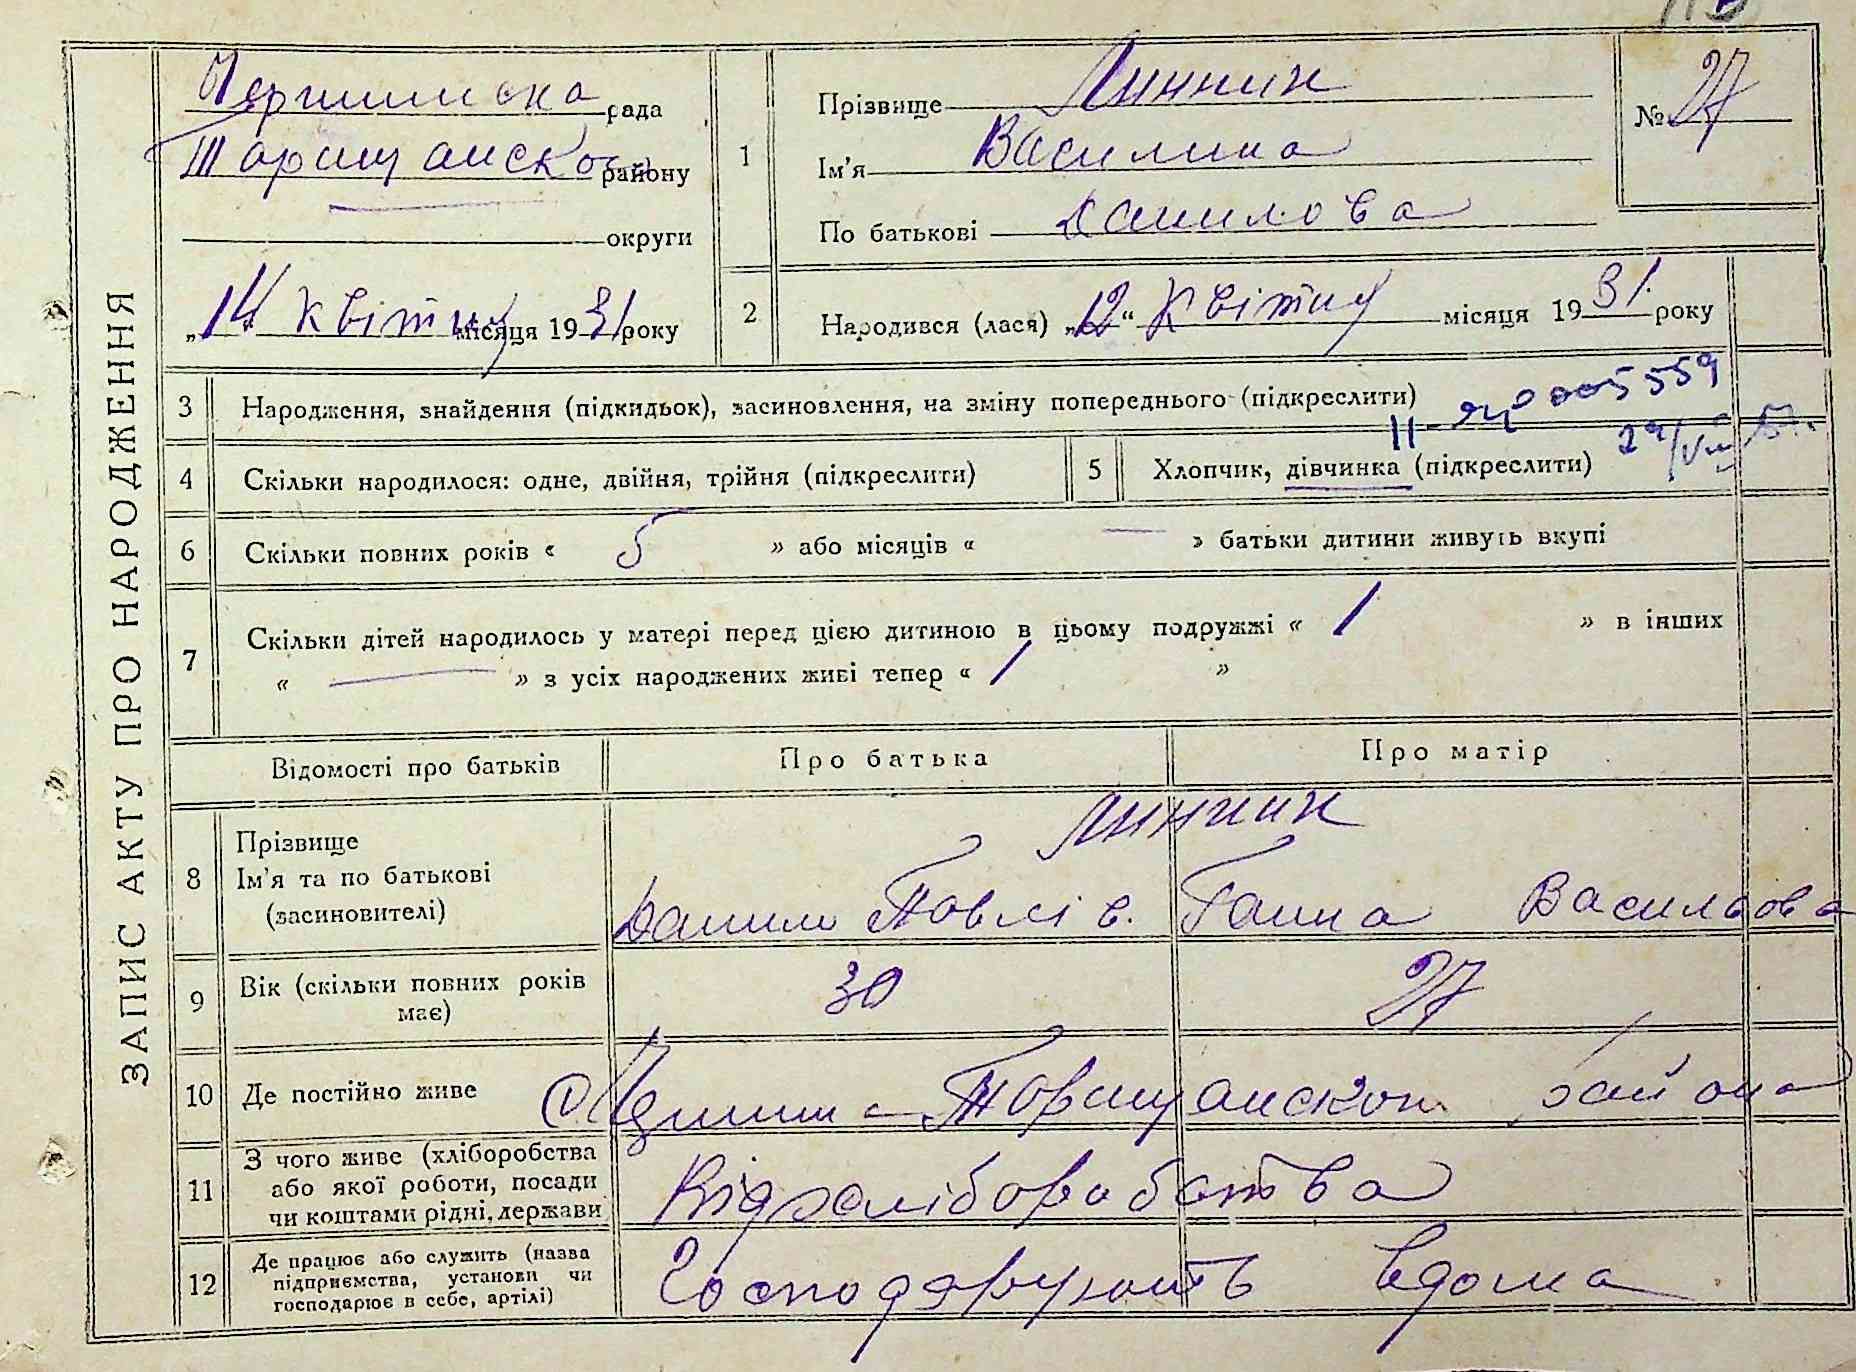 ЗАПИС АКТУ ПРО НАРОДЖЕННЯ
рада
району
округи
„14“ квітня місяця 1931 року
1
Прізвище Линник
Ім'я Василина
По батькові Данилова
№ 27
2
Народився (лася) „12“ Квітня місяця 1931. року
3 Народження, знайдення (підкидьок), засиновлення, на зміну попереднього (підкреслити)
0005559
4 Скільки народилося: одне, двійня, трійня (підкреслити)
5 Хлопчик, дівчинка (підкреслити)
6 Скільки повних років « 5 » або місяців « — » батьки дитини живуть вкупі
7 Скільки дітей народилось у матері перед цією дитиною в цьому подружжі « 1 » в інших
« — » з усіх народжених живі тепер « 1 »
Відомості про батьків
Про батька
Про матір
8 Прізвище
Ім'я та по батькові
(засиновителі)
Линник
Данило Павлів. Ганна Васильова
9 Вік (скільки повних років
має)
30
27
10 Де постійно живе
с.
11 З чого живе (хліборобства
або якої роботи, посади
чи коштами рідні, держави
Від хліборобства
12 Де працює або служить (назва
підприємства, установи чи
господарює в себе, артілі)
Господарують вдома